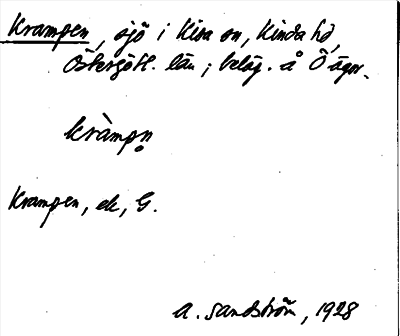 Krampen, sjö i Kisa sn, Kinda hd,
Östergötl. län; beläg. å Ö ägor.
kràmpn̥
Krampen, ek, G.
A. Sandström, 1928